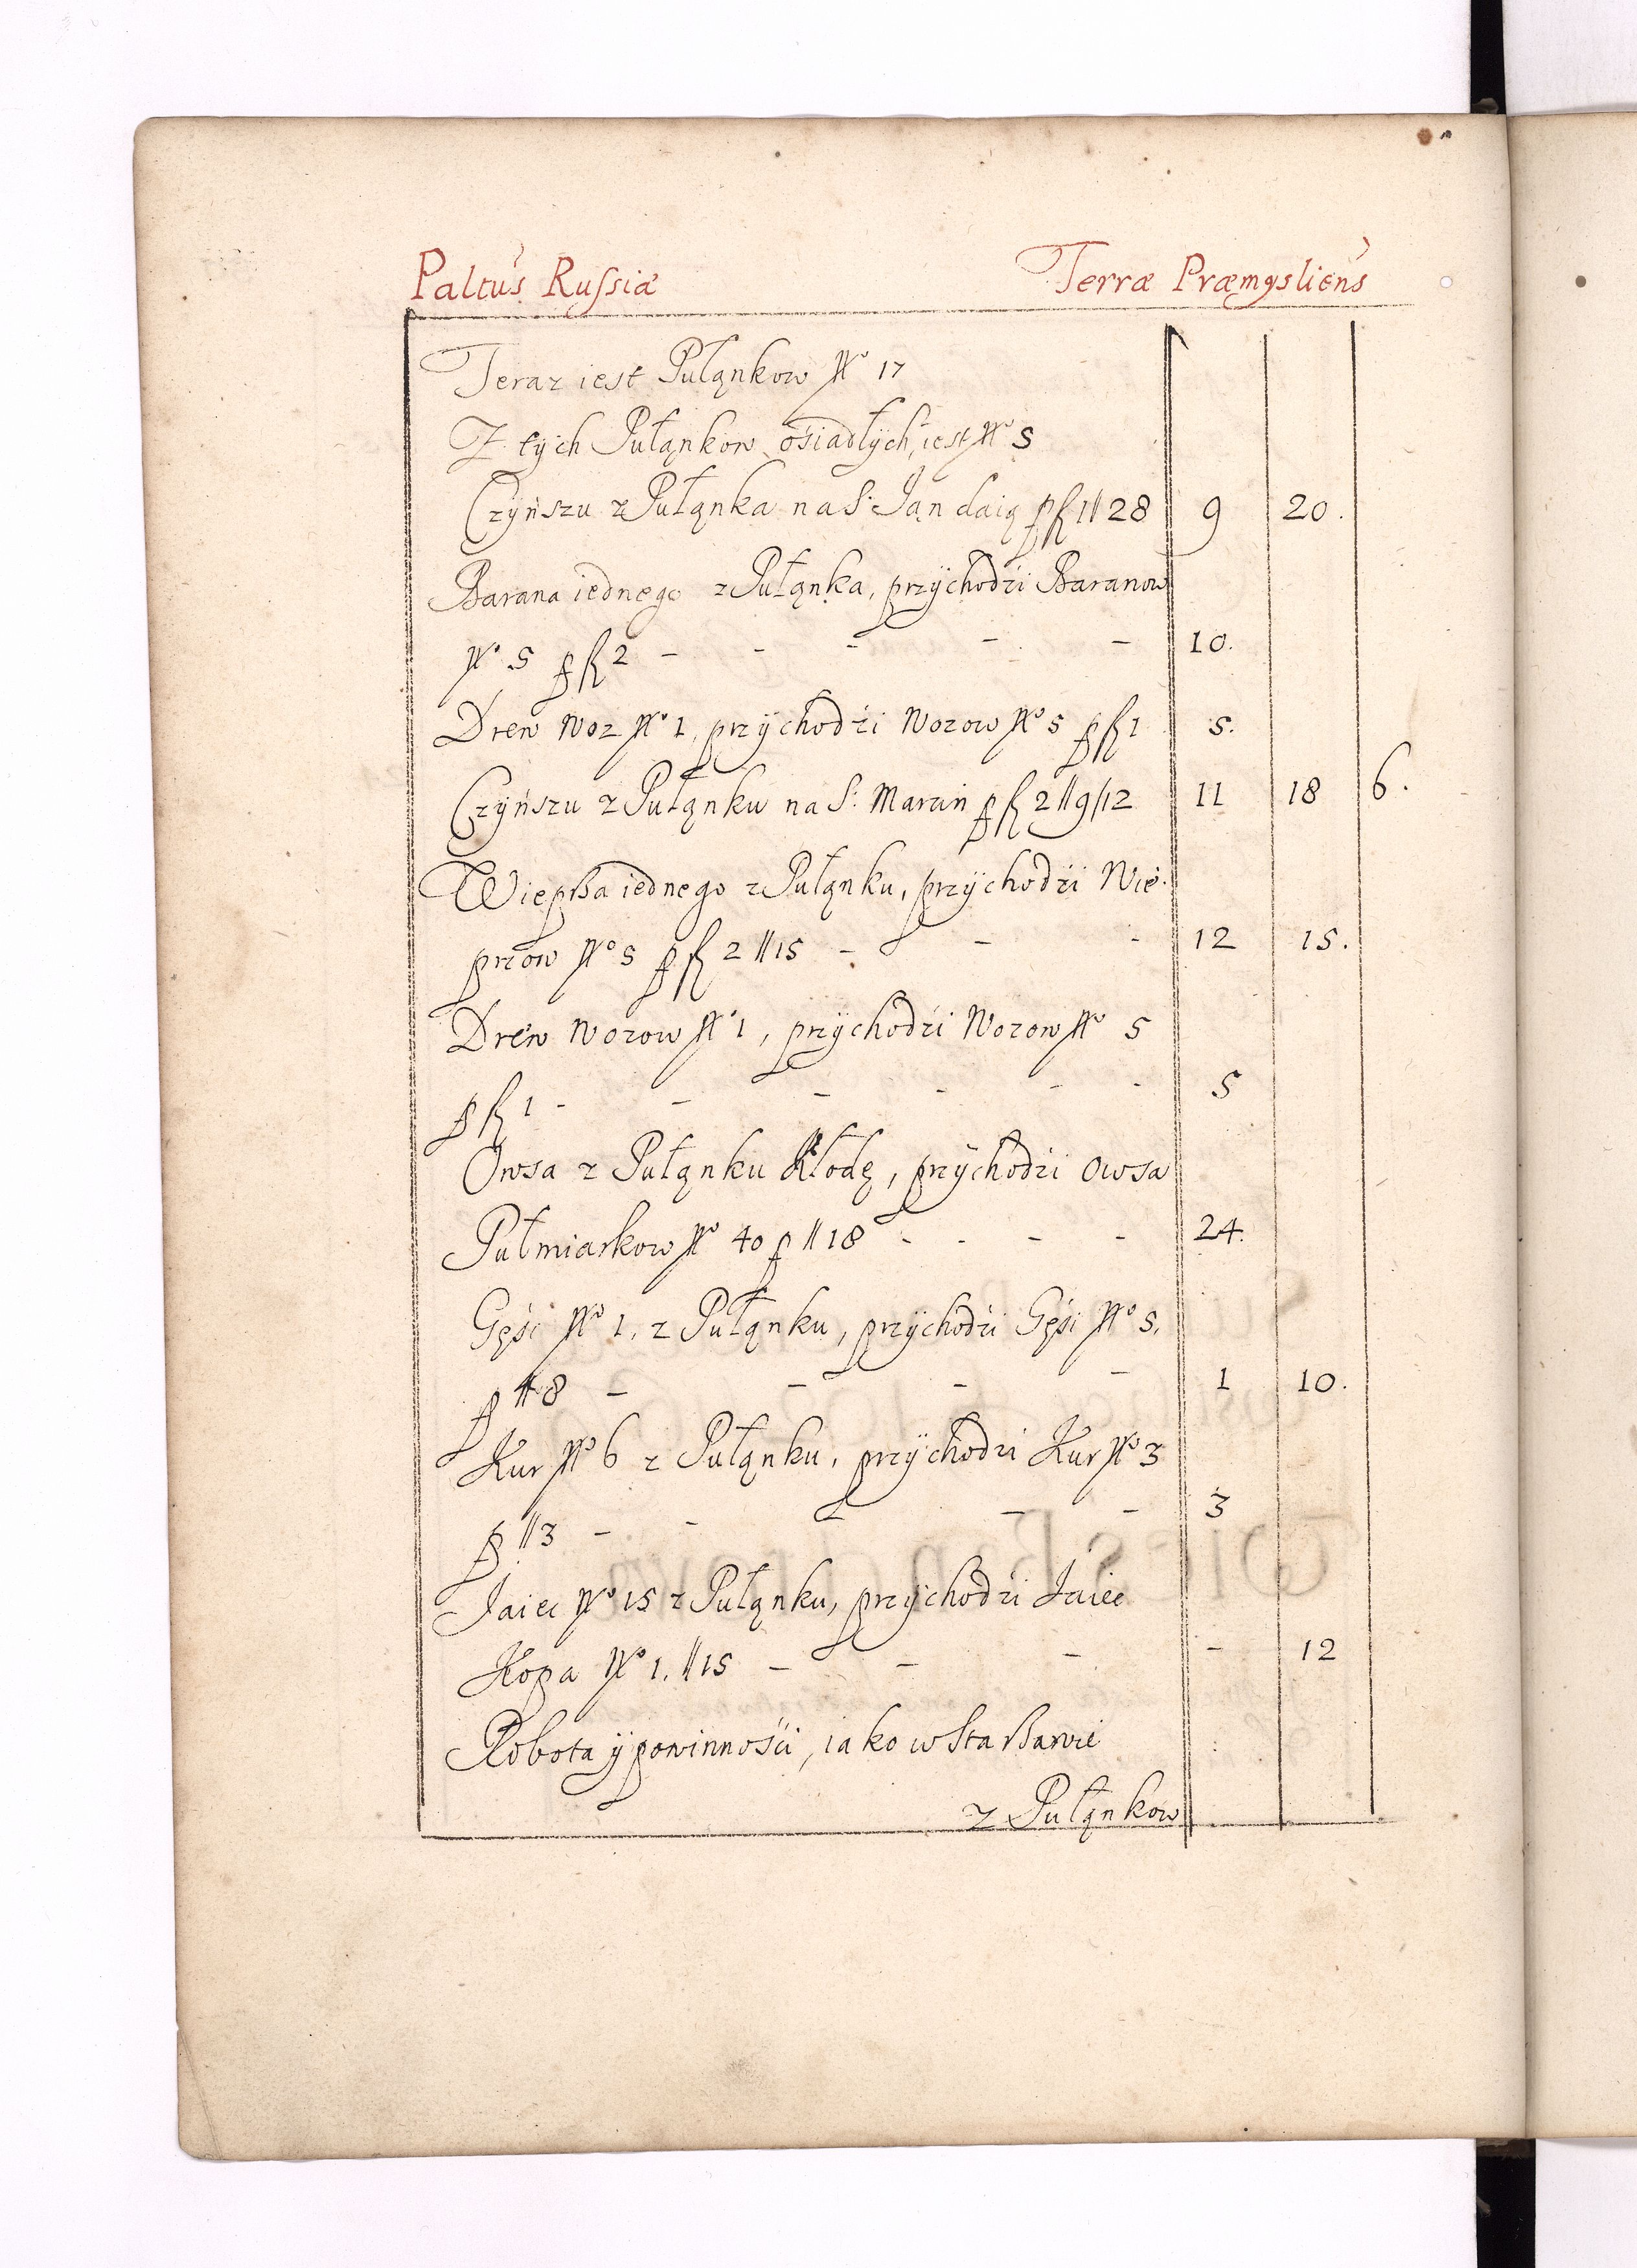 Paltus Russiæ Terræ Præmysliens
Teraz iest Pułąnkow No 17
Z tych Pułąnkow osiadłych, iest No 5
Czyńszu z Pułąnka na S: Jan daią p fl 1 ll 28 9 20.
Barana iednego z Pułąnka, przÿchodźi Baranow
No 5 p fl 2 - - - - - 10.
Drew Woz No 1, przÿchodźi Wozow No 5 p fl 1 5.
Czÿńszu z Pułąnku na S: Marcin p fl 2 ll 9/12 11 18 6.
Wiepßa iednego z Pułąnku, przÿchodźi Wie-
przow No 5 p fl 2 ll 15 - - - 12 15.
Drew Wozow No 1, przÿchodźi Wozow No 5
p fl 1 - - - - - - 5
Owsa z Pułąnku Kłodę, przÿchodźi Owsa
Pułmiarkow No 40 p ll 18 - - - - 24.
Gęśi No 1. z Pułąnku, przÿchodźi Gęśi No 5.
p ll 8 - - - - 1 10.
Kur No 6 z Pułąnku, przÿchodzi Kur No 3
p ll 3 - - - - 3
Jaiec No 15 z Pułąnku, przÿchodźi Jaiec
Kopa No 1. ll 15 - - - - 12
Robota ÿ powinnośći, iako w Staßawie
z Pułąnkow